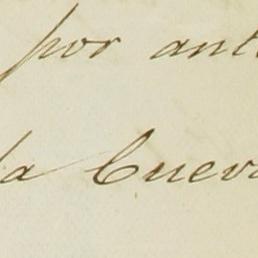 por ant
la Cueva